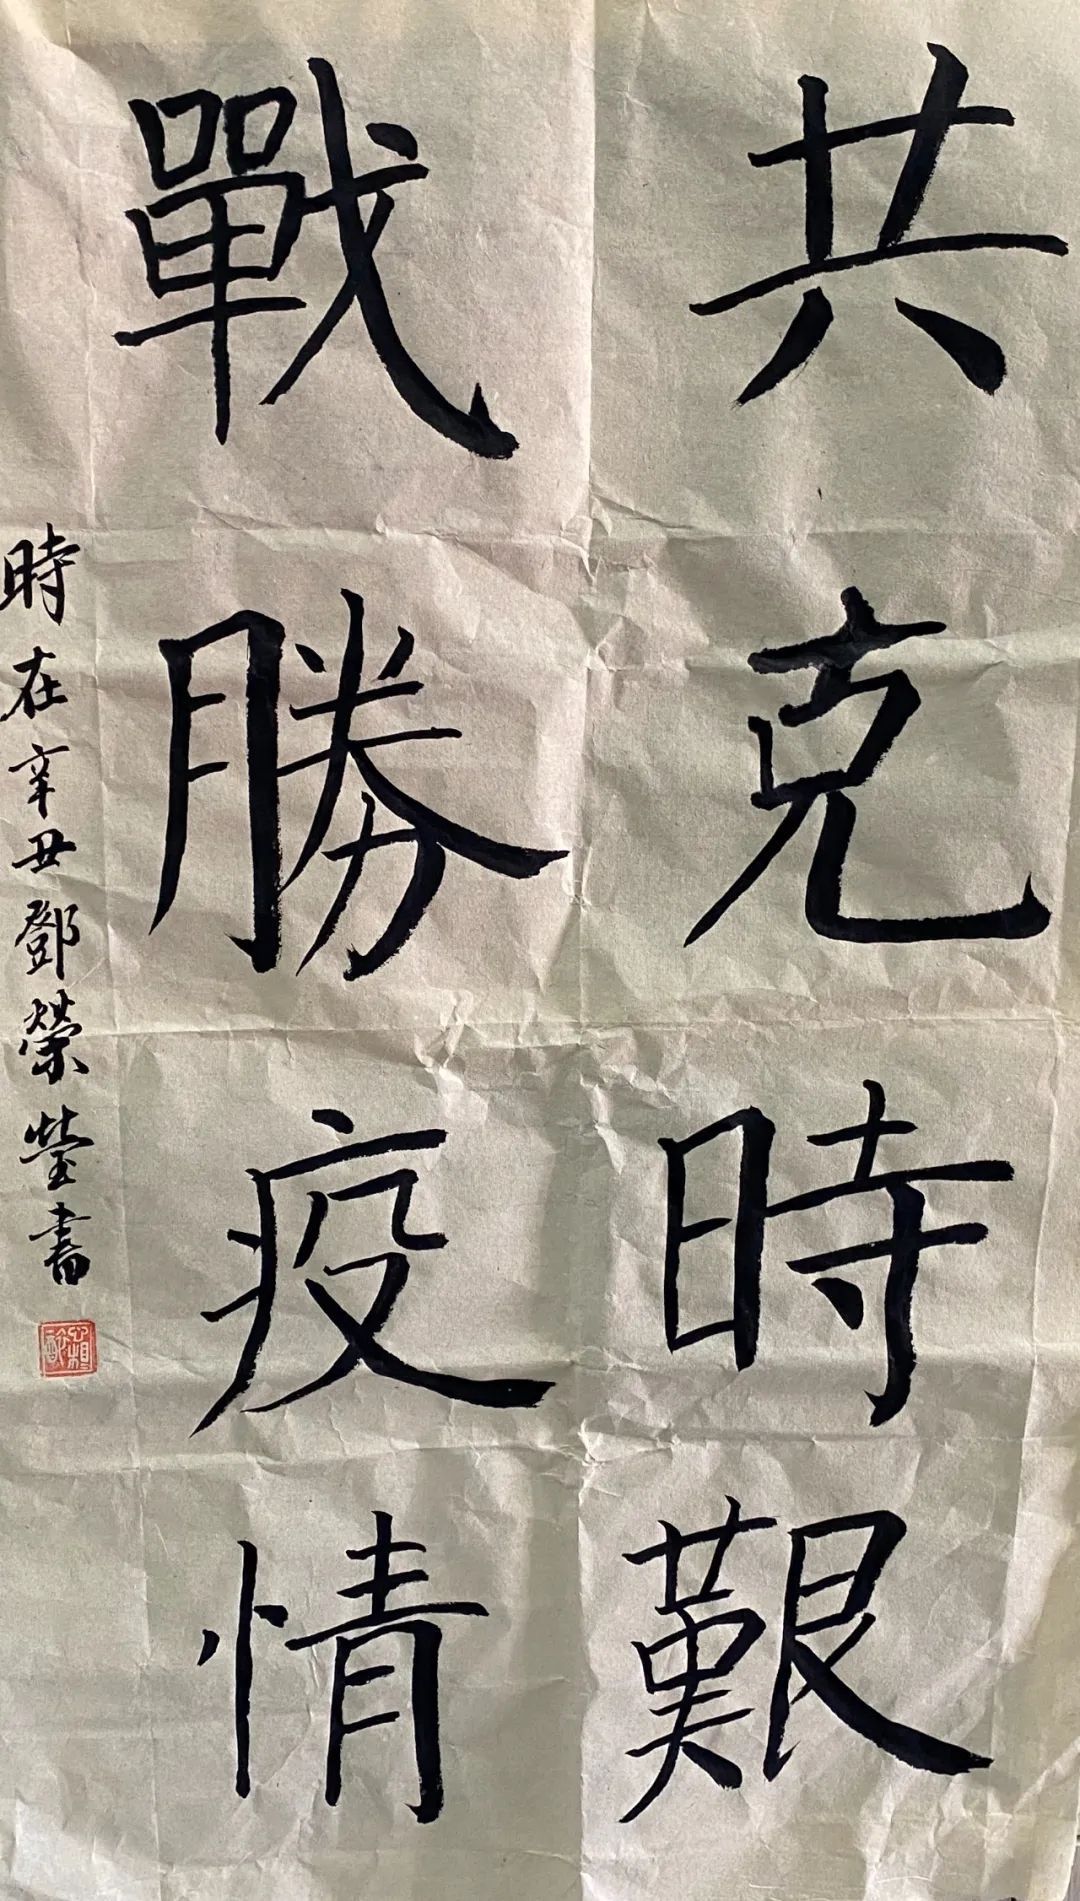 共克時艱
戰勝疫情
時在辛丑鄧榮瑩書